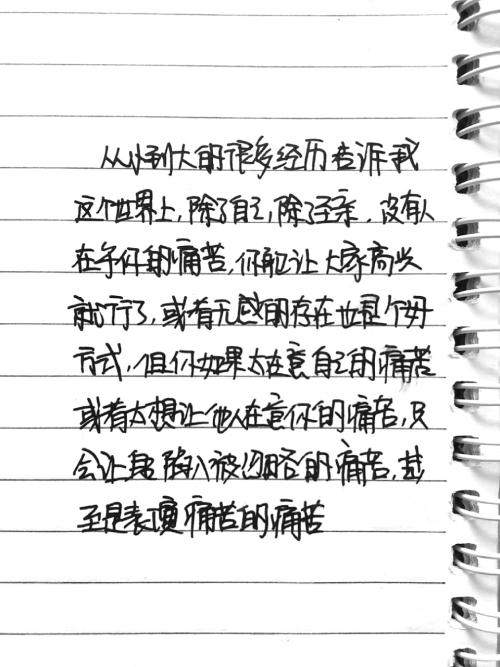 从小到大的很多经历告诉我
这个世界上,除了自己,除了至亲,没有人
在乎你的痛苦,你能让大家高兴
就行了,或者无感的存在也是个好
方式,但你如果太在意自己的痛苦
或者太想让他人在意你的痛苦,只
会让自己陷入被忽略的痛苦,甚
至是表演痛苦的痛苦